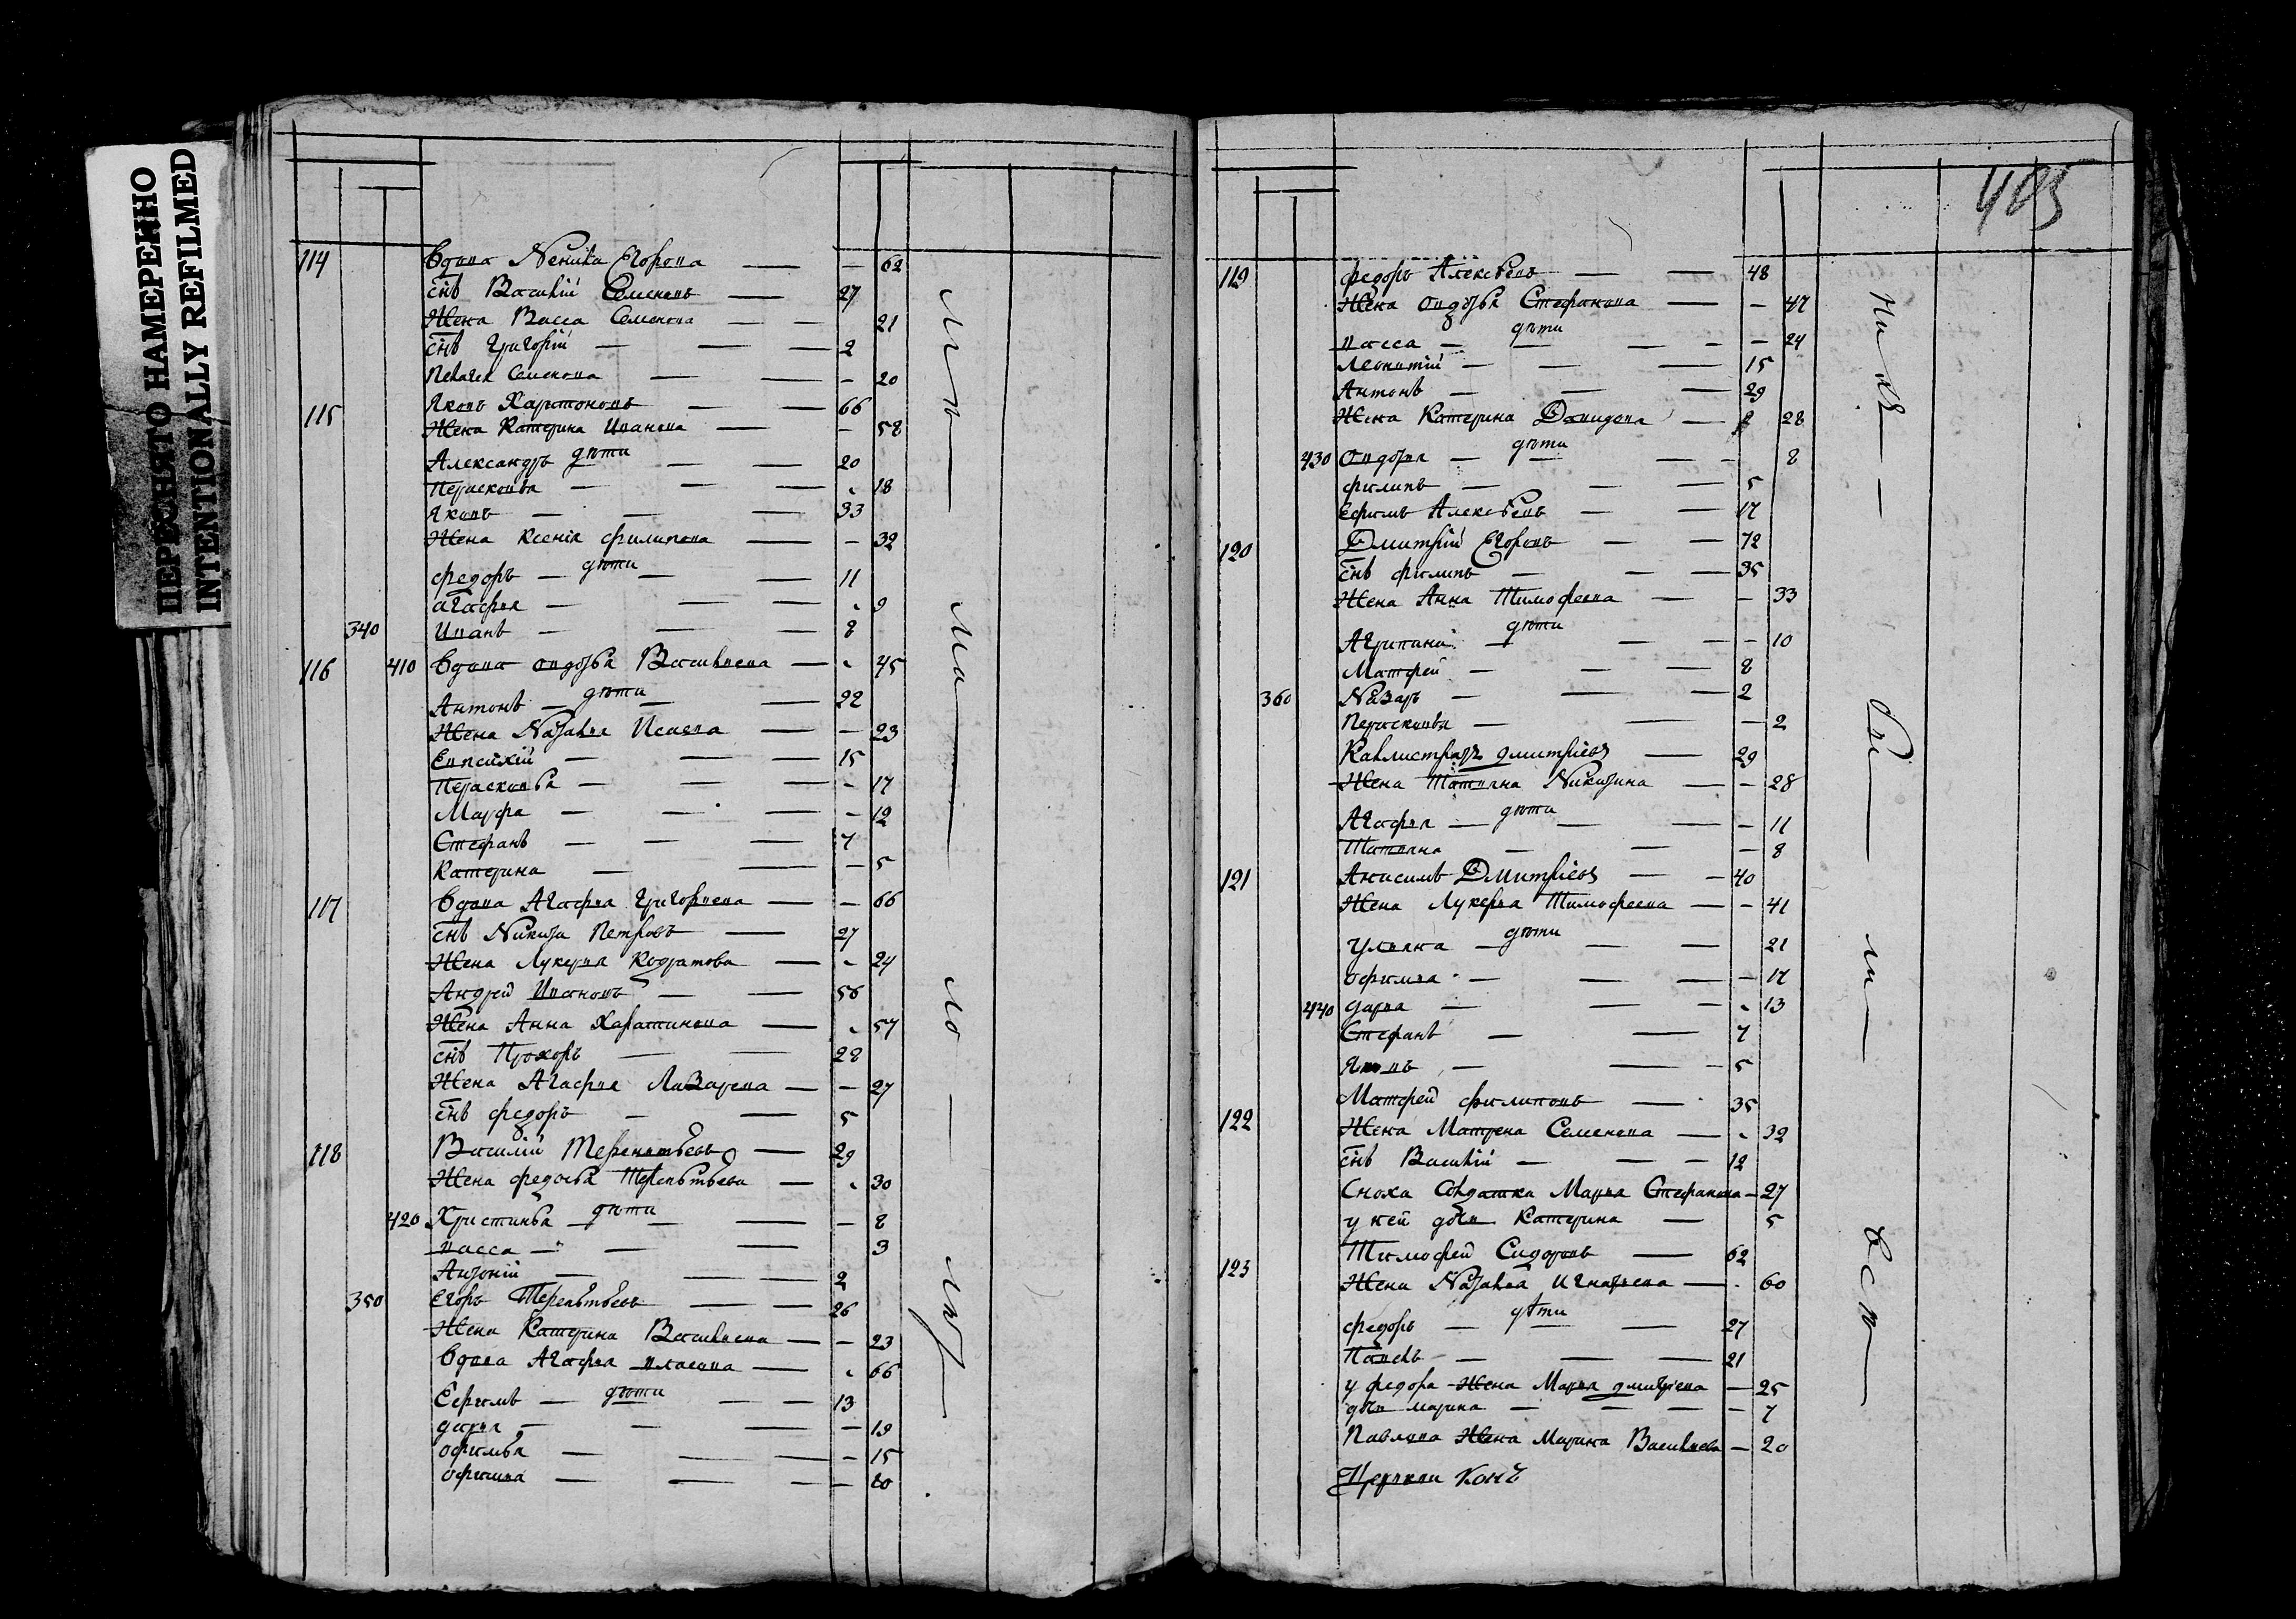 ПЕРЕСНЯТО НАМЕРЕННО
INTENTIONALLY REFILMED
114 Вдова Ненила Егорова — 62
снъ Василій Семеновъ 27
Жена Васса Семенова 21
снъ Григорій 2
Пелагея Семенова — 20
115 Яковъ Харитоновъ 66
Жена Катерина Иванова — 58
дѣти
Александръ 20
Перасковья 18
Яковъ 33
Жена Ксенія Филипова — 32
дѣти
Федоръ 11
Агафья 9
340 Иванъ 8
116 410 Вдова Авдотья Васильева 45
дѣти
Антонъ 22
Жена Наталья Исаева — 23
15
Перасковья — 17
Марфа — 12
Стефанъ 7
Катерина — 5
117 Вдова Агафья Григорьева — 66
снъ Никита Петровъ 27
Жена Лукерья Кодратова 24
Андрей Ивановъ 56
Жена Анна 57
снъ Прохоръ 28
Жена Агафья Лазарева — 27
снъ Федоръ 5
118 Василій Терентьевъ 29
Жена Федосья 30
дѣти
420 Христинья — 8
Васса 3
Антоній 2
350 Егоръ Терентьевъ 26
Жена Катерина Васильева — 23
Вдова Агафья Власова 66
дѣти
Ефимъ 13
Дарья — 19
Офимья — 15
Офимья — 20
403
119 Федоръ Алексѣевъ 48
Жена Авдотья Стефанова — 47
дѣти
Васса — 24
Леонтій 15
Антонъ 29
Жена Катерина Давидова 28
дѣти
430 Авдотья 8
Филипъ 5
Ефимъ Алексѣевъ 17
120 Дмитрій Егоровъ 72
снъ Филипъ 35
Жена Анна Тимофеева — 33
дѣти
Агрипина — 10
Матфей 8
360 Назаръ 2
Перасковья — 2
Каллистратъ Дмитріевъ 29
Жена Татьяна Никитина — 28
дѣти
Агафья — 11
Татьяна — 8
121 Анисимъ Дмитріевъ 40
Жена Лукерья Тимофеева — 41
дѣти
Ульяна 21
Офимья — 17
440 Дарья 13
Стефанъ 7
Яковъ 5
122 Матфей Филиповъ 35
Жена Матрена Семенова 32
снъ Василій 12
Сноха Солдатка Марья Стефанова — 27
у ней дочь Катерина 5
123 Тимофей Сидоровъ 62
Жена Наталья Игнатьева 60
дѣти
Федоръ 27
Павелъ 21
у Федора Жена Марья Дмитріева — 25
дочь Марина — 7
Павлова Жена Марина Васильева — 20